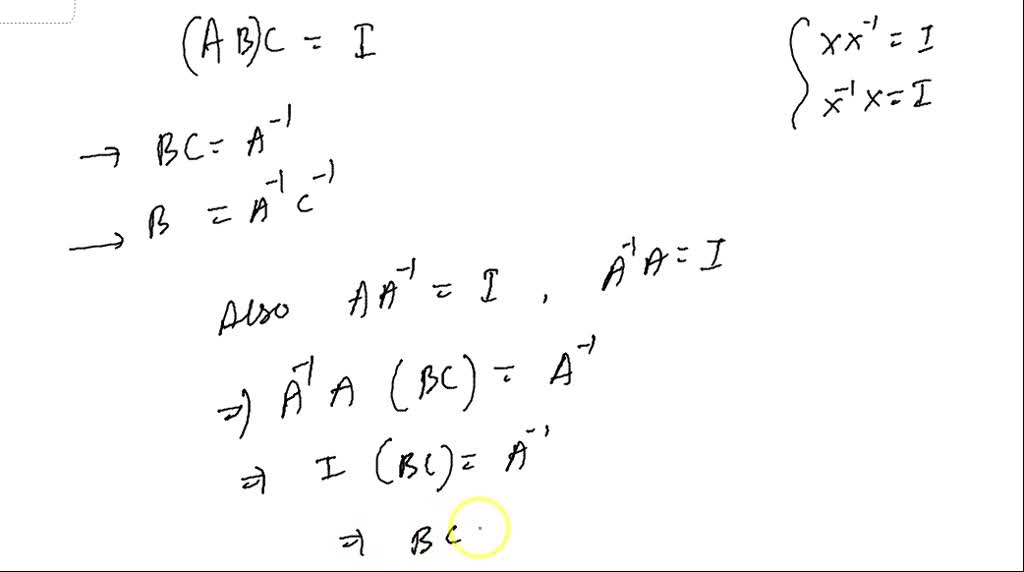 (AB)C = I
{ XX⁻¹ = I
X⁻¹X = I
→ BC = A⁻¹
→ B = A⁻¹ C⁻¹
Also AA⁻¹ = I , A⁻¹A = I
⇒ A⁻¹ A (BC) = A⁻¹
⇒ I (BC) = A⁻¹
⇒ BC